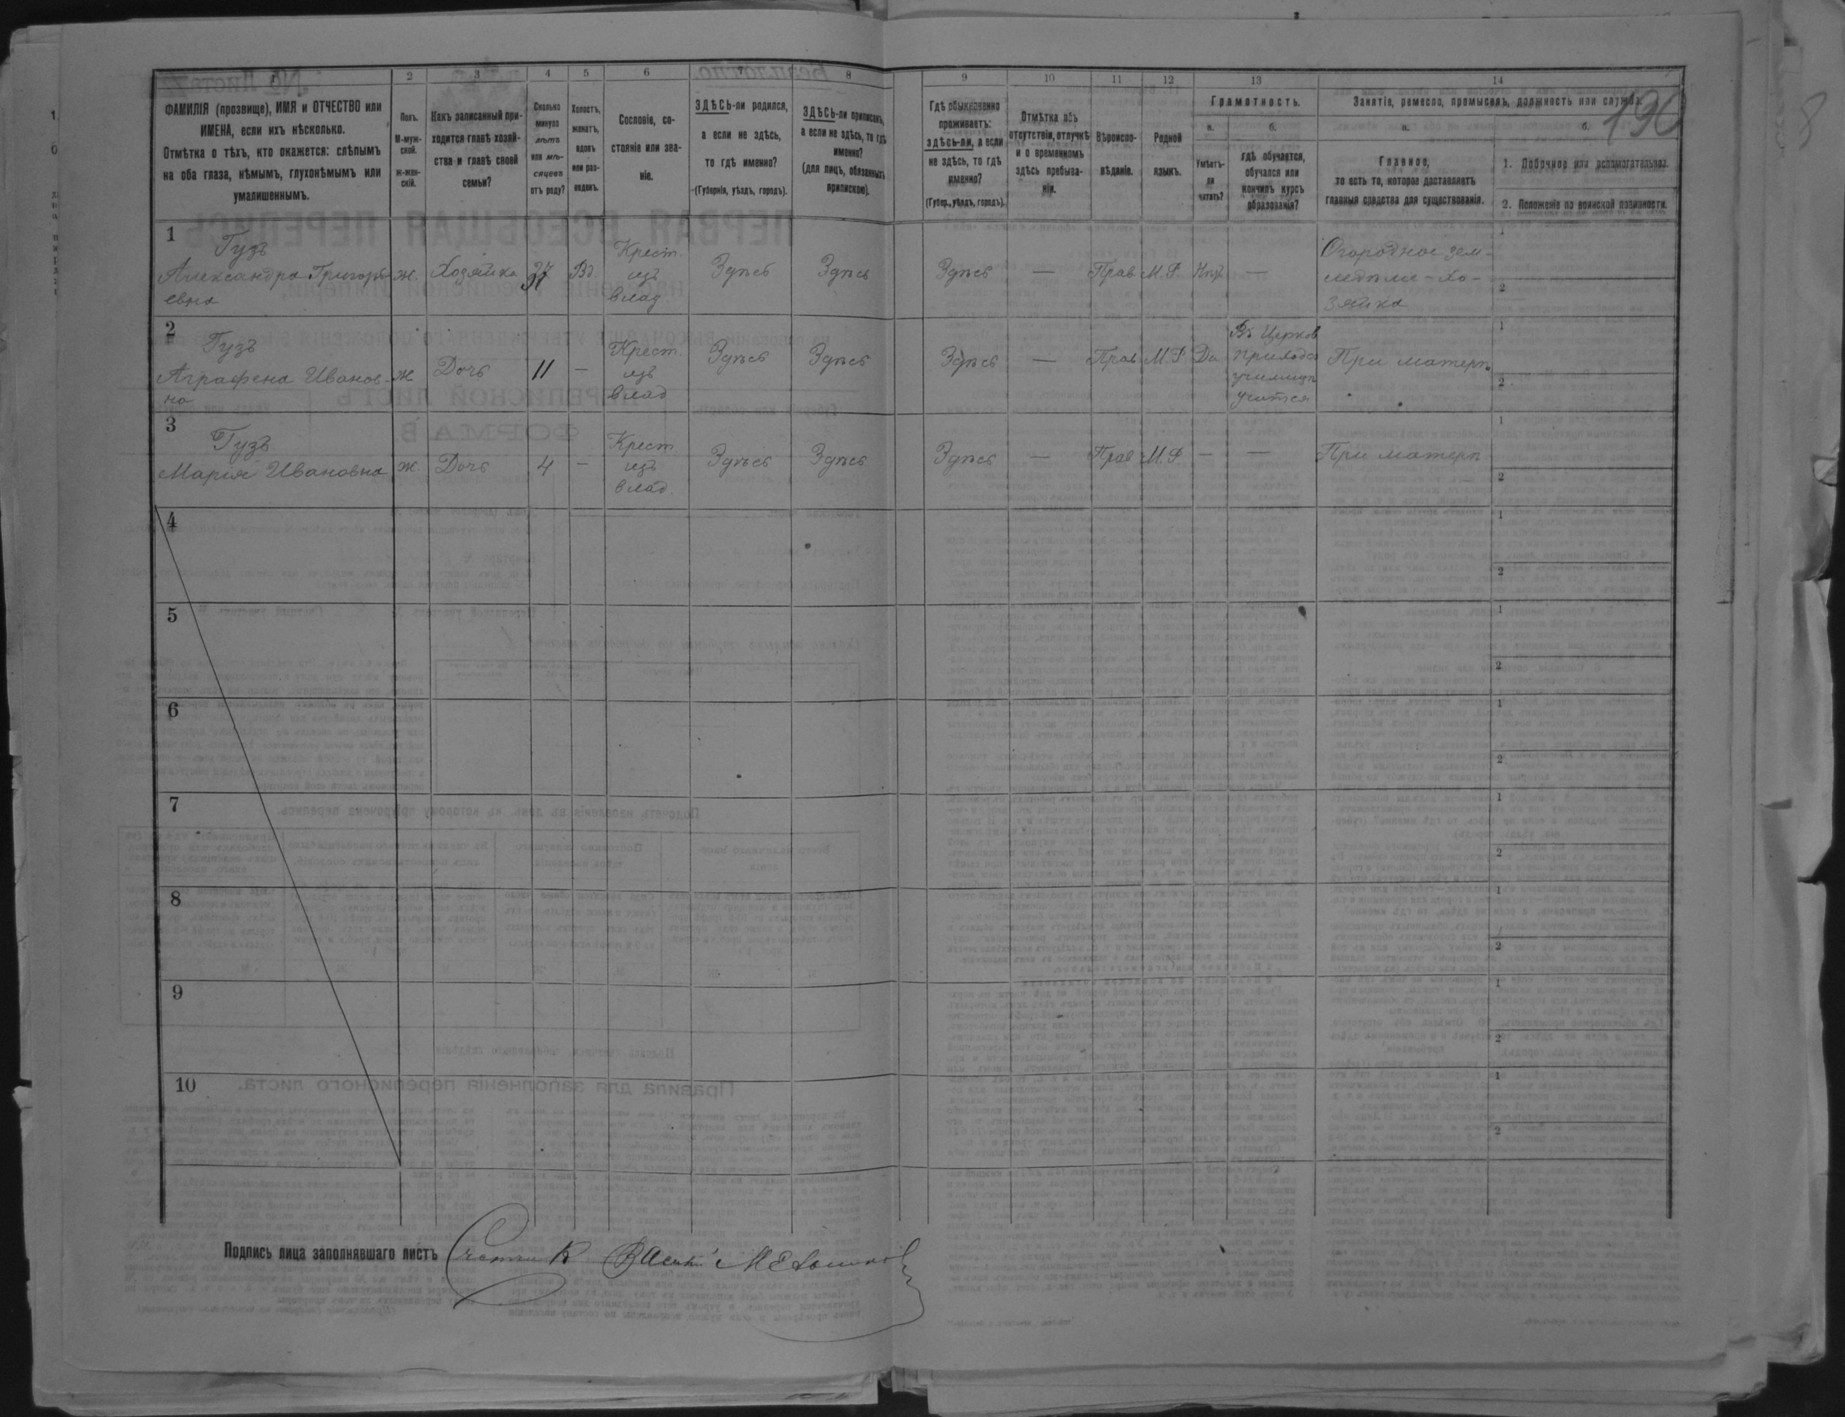 1 2 3 4 5 6 8 9 10 11 12 13 14
ФАМИЛІЯ (прозвище), ИМЯ и ОТЧЕСТВО или
ИМЕНА, если ихъ нѣсколько.
Отмѣтка о тѣхъ, кто окажется: слѣпымъ
на оба глаза, нѣмымъ, глухонѣмымъ или
умалишеннымъ.
Полъ.
М-муж-
ской.
Ж-жен-
скій.
Какъ записанный при-
ходится главѣ хозяй-
ства и главѣ своей
семьи?
Сколько
минуло
лѣтъ
или мѣ-
сяцевъ
отъ роду?
Холостъ,
женатъ,
вдовъ
или раз-
веденъ.
Сословіе, со-
стояніе или зва-
ніе.
ЗДѢСЬ-ли родился,
а если не здѣсь,
то гдѣ именно?
(Губернія, уѣздъ, городъ).
ЗДѢСЬ-ли приписанъ,
а если не здѣсь, то гдѣ
именно?
(для лицъ, обязанныхъ
припискою).
Гдѣ обыкновенно
проживаетъ:
здѣсь-ли, а если
не здѣсь, то гдѣ
именно?
(Губер., уѣздъ, городъ).
Отмѣтка объ
отсутствіи, отлучкѣ
и о временномъ
здѣсь пребыва-
ніи.
Вѣроиспо-
вѣданіе.
Родной
языкъ.
Грамотность.
а.
Умѣетъ-
ли
читать?
б.
гдѣ обучается,
обучался или
кончилъ курсъ
образованія?
Занятіе, ремесло, промыселъ, должность или служба.
190
а.
Главное,
то есть то, которое доставляетъ
главныя средства для существованія.
б.
1. Побочное или вспомогательное.
2. Положеніе по воинской повинности.
1
Гузъ
Александра Григорь-
евна
ж. Хозяйка 37 Вд.
Крест.
изъ
влад.
Здѣсь Здѣсь Здѣсь — Прав М.Р. Нѣт —
Огородное зем-
ледѣліе - хо-
зяйка
1
2
2
Гузъ
Аграфена Иванов-
на
ж Дочь 11 —
Крест.
изъ
влад
Здѣсь Здѣсь Здѣсь — Прав М.Р Да
Въ Церков
приходс
училищѣ
учится
При матери
1
2
3
Гузъ
Марія Ивановна
ж. Дочь 4 —
Крест
изъ
влад.
Здѣсь Здѣсь Здѣсь — Прав М.Р — —
При матери
1
2
4
1
2
5
1
2
6
1
2
7
1
2
8
1
2
9
1
2
10
1
2
Подпись лица заполнявшаго листъ Счетчик